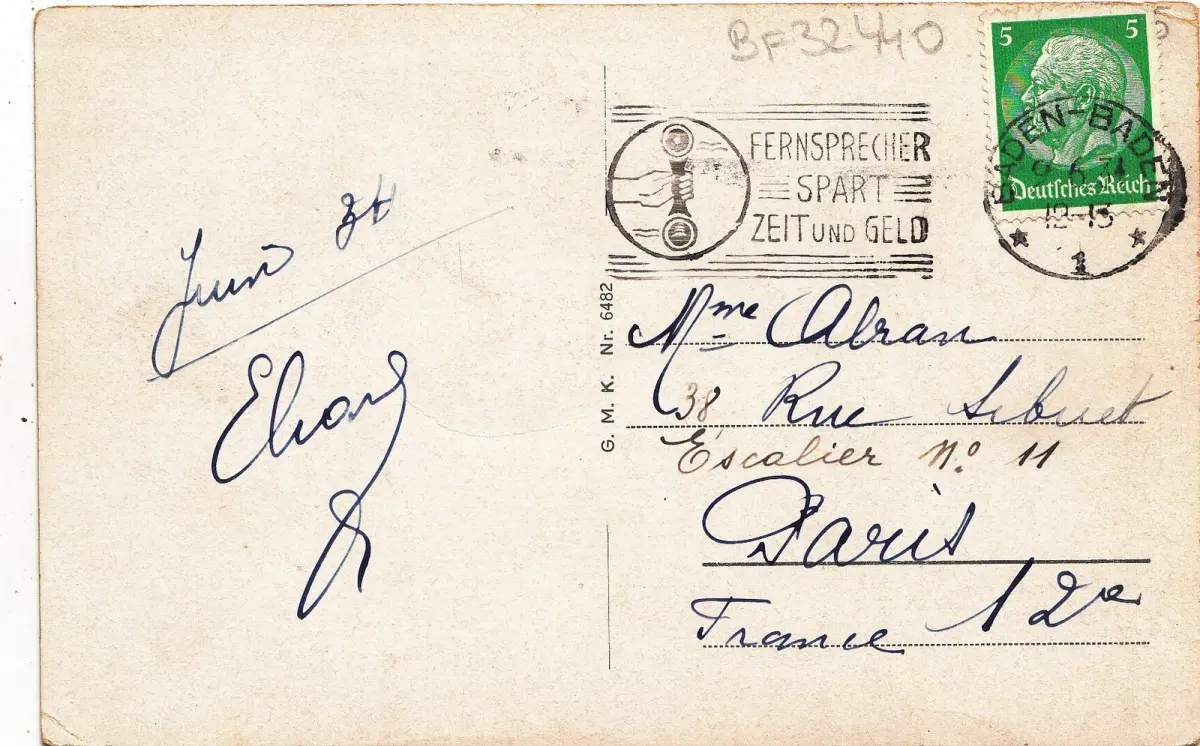 BF32440
5 5
Deutsches Reich
BADEN-BADEN
12-13
1
FERNSPRECHER
SPART
ZEIT UND GELD
Juin 34
G. M. K. Nr. 6482
Mme Abran
38 Rue Sibuet
Escalier N° 11
Paris
France 12e